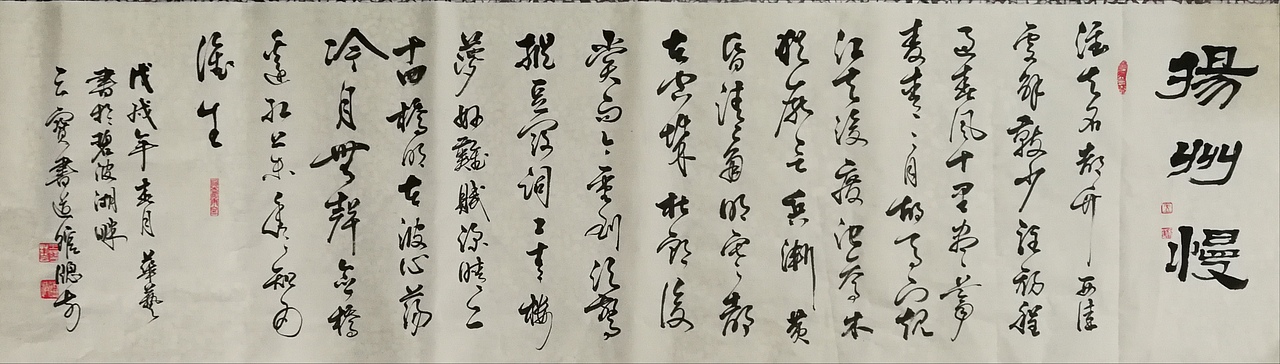 揚州慢
淮左名都竹西佳
處解鞍少駐初程
過春風十里盡薺
麥青青自胡馬窺
江去後廢池喬木
猶厭言兵漸黃
昏清角吹寒都
在空城杜郎俊
賞而今重到須驚
縱豆蔻詞工青樓
夢好難賦深情二
十四橋仍在波心蕩
冷月無聲念橋
邊紅藥年年知為
誰生
戊戌年 月 華藝
書於碧波湖畔
三寶書道館